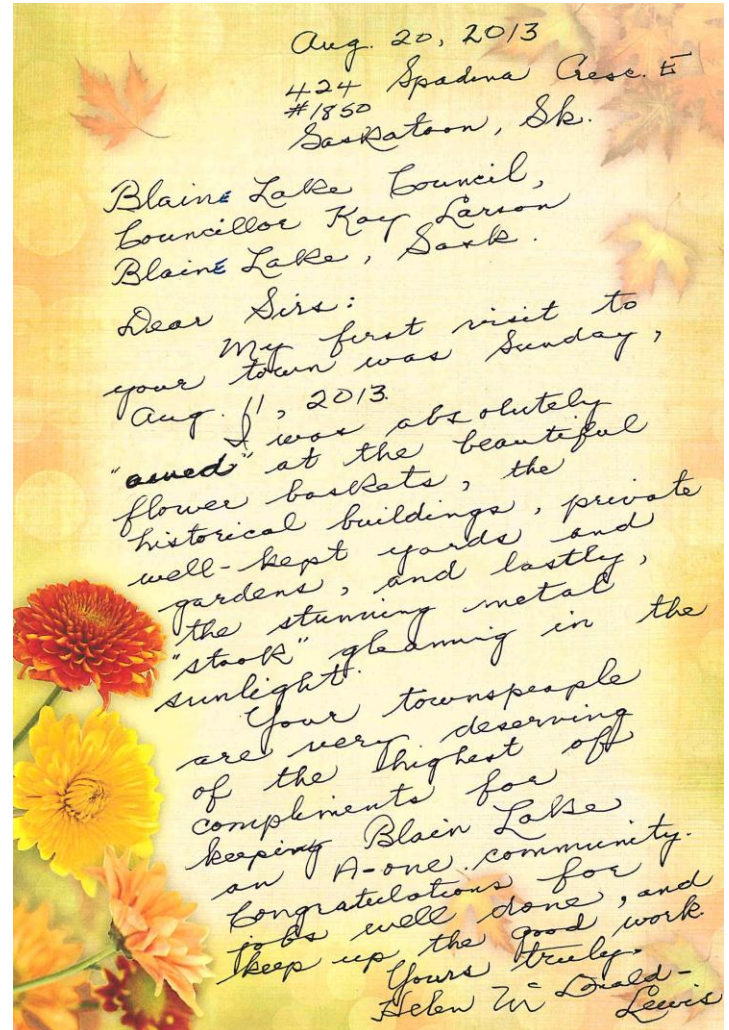 Aug. 20, 2013
424 Spadina Cresc. E
#1850
Saskatoon, Sk.
Blaine Lake Council,
Councillor Kay Larson
Blaine Lake, Sask.
Dear Sirs:
My first visit to
your town was Sunday,
Aug. 11, 2013.
I was absolutely
"awed" at the beautiful
flower baskets, the
historical buildings, private
well-kept yards and
gardens, and lastly,
the stunning metal
"stook" gleaming in the
sunlight.
Your townspeople
are very deserving
of the highest of
compliments for
keeping Blain Lake
an A-one community.
Congratulations for
jobs well done, and
keep up the good work.
Yours truly.
Helen McDonald-
Lewis